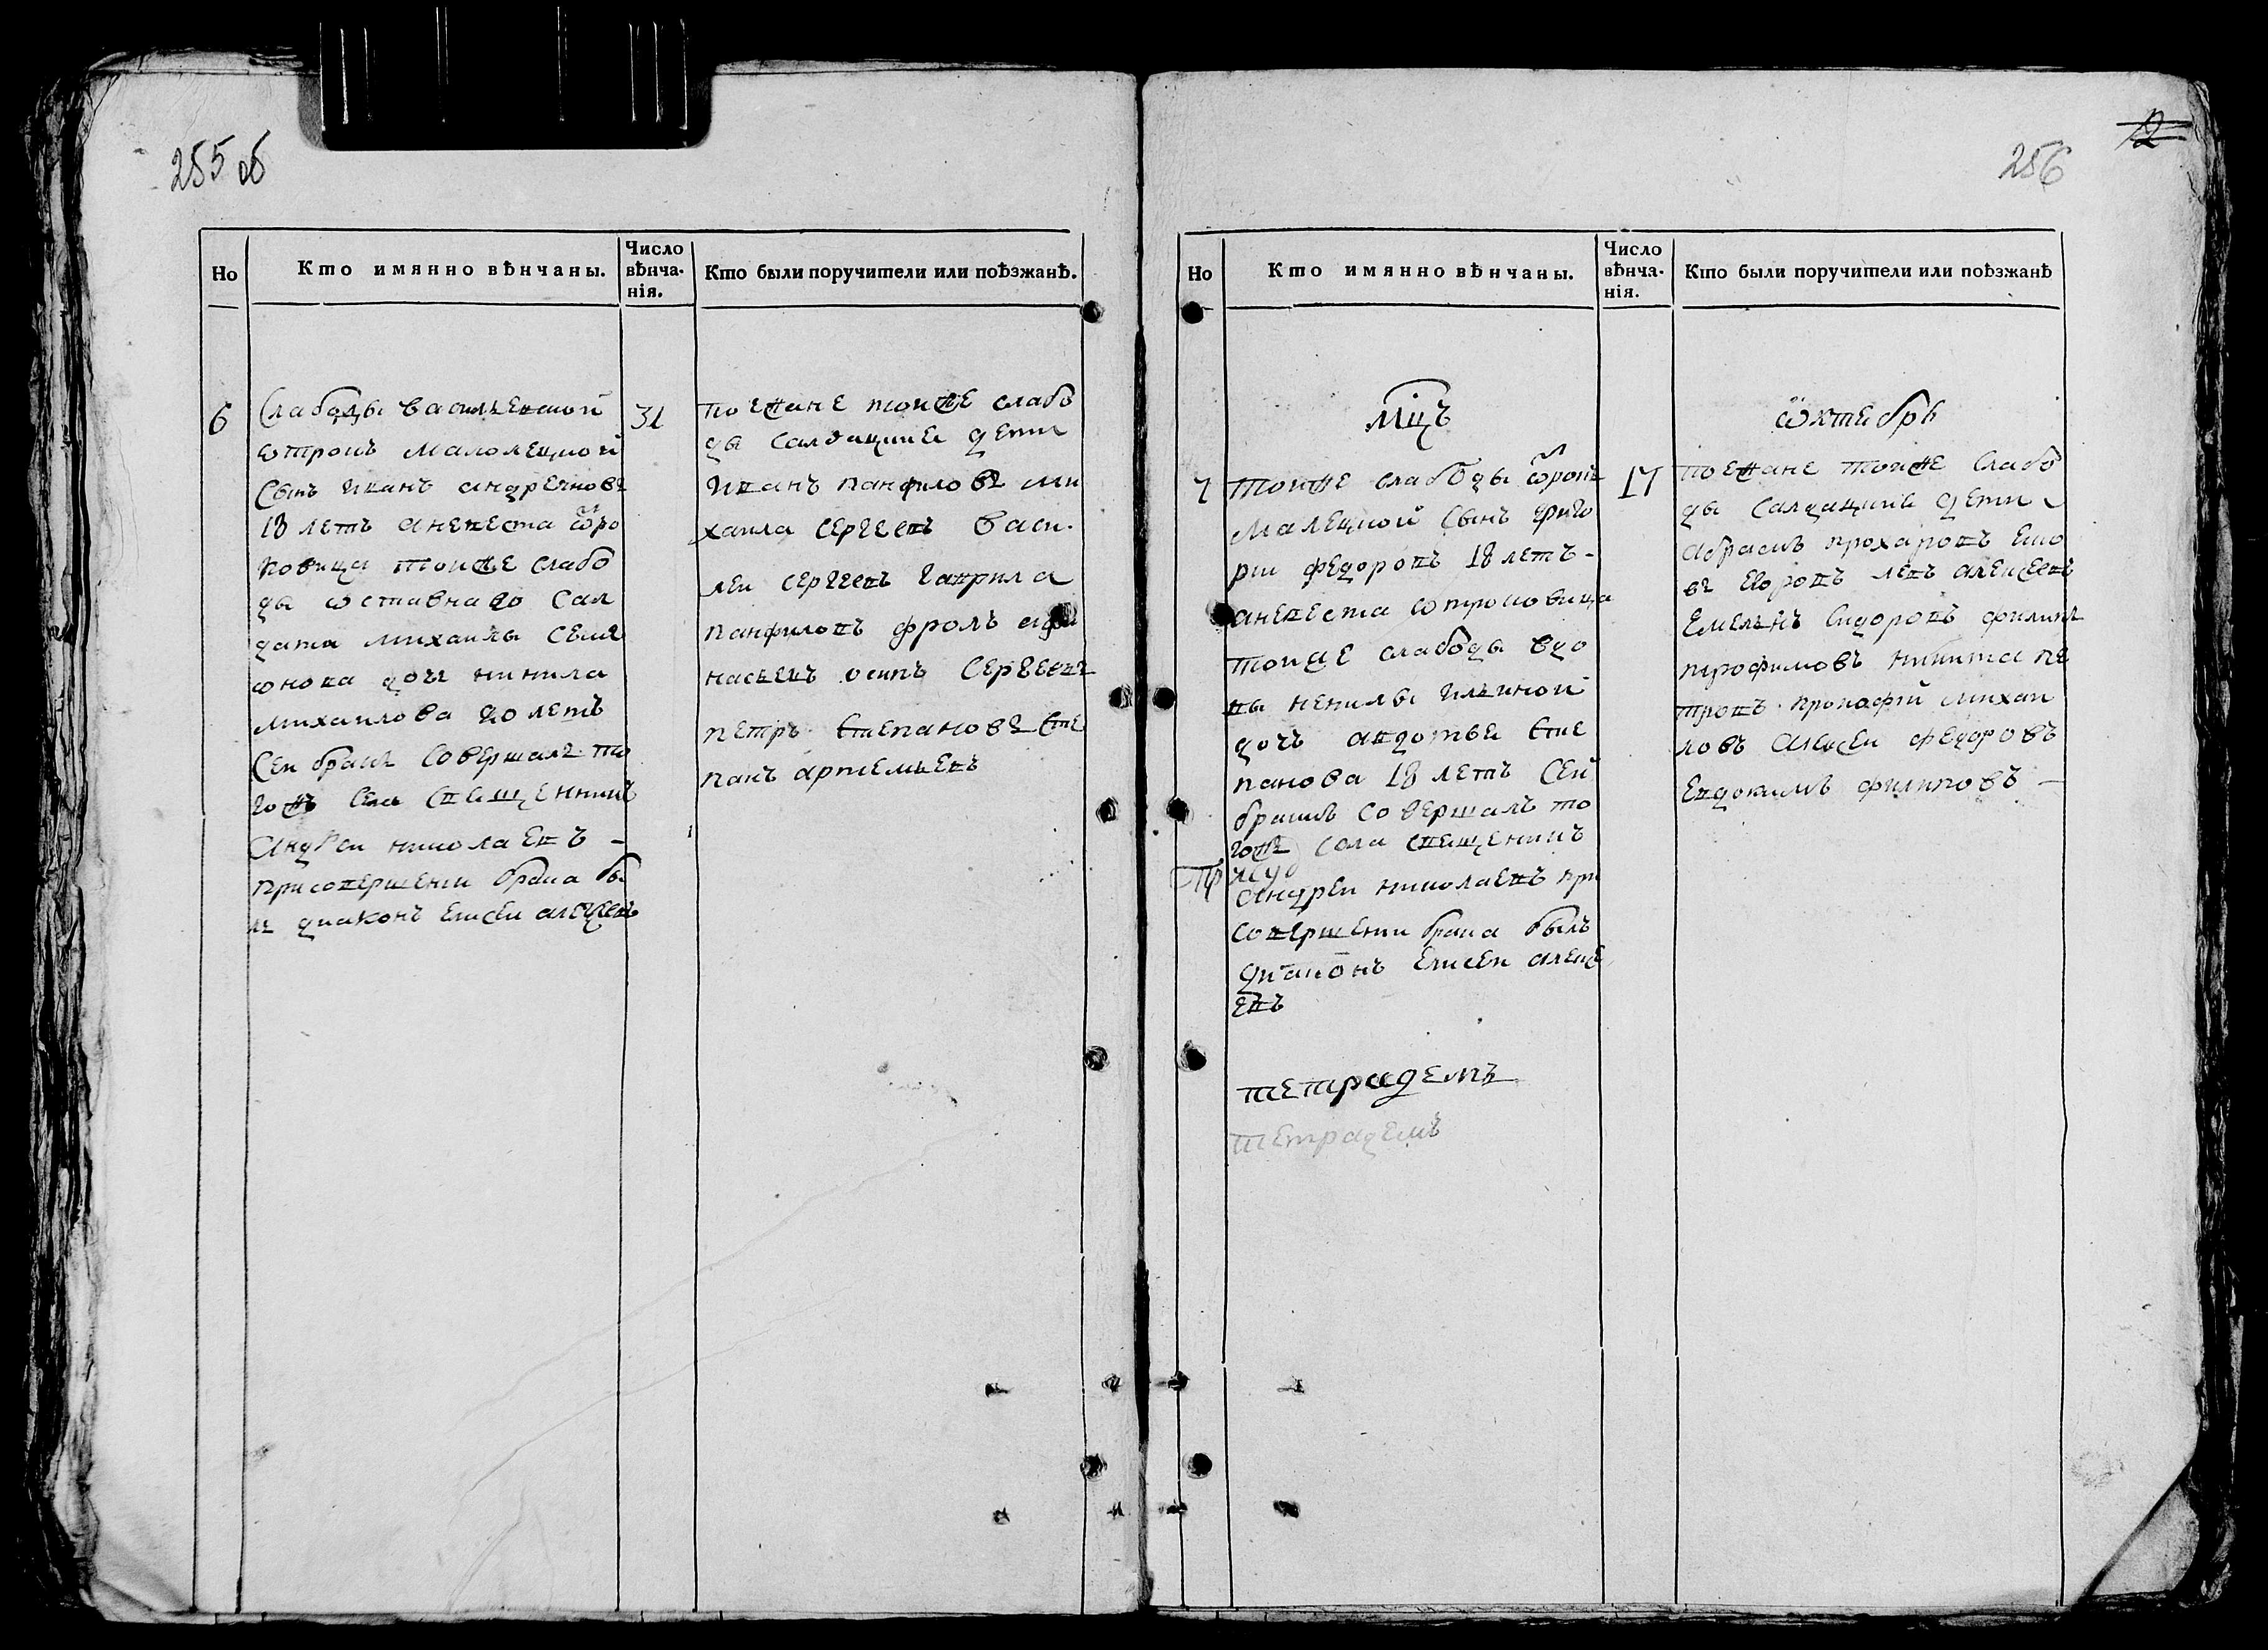 255 об
Но
Кто имянно вѣнчаны.
Число вѣнча-
нія.
Кто были поручители или поѣзжанѣ.
6
Слабоды василевской
ѡтрокъ малолецкой
Сынъ иванъ андреяновъ
18 летъ аневеста ѡтро
ковица тоиже слабо
ды ѡставнаго сал
дата михаилы семе
ѡнова дочь ненила
михаилова 20 летъ
Сеи бракъ совершалъ то
гожъ села священникъ
Андреи николаевъ –
присовершени брака бы
лъ диаконъ елисеи алексеевъ
31
поежане тоиже слабо
ды салдацкие дети
Иванъ панфиловъ ми
хаила сергеевъ васи-
леи сергеевъ гаврила
панфиловъ фролъ
насьевъ осипъ сергеевъ
петръ степановъ сте
панъ артемьевъ
256
12
Но
Кто имянно вѣнчаны.
Число вѣнча-
нія.
Кто были поручители или поѣзжанѣ
Мцъ
ѡктебрь
7
Тоиже слабоды ѡтрокъ
малецкой сынъ григо
рии федоровъ 18 летъ –
аневеста ѡтроковица
тоиже слабоды вдо
вы ненилы ильиной
дочь авдотьеи сте
панова 18 летъ сей
бракъ совершалъ то
гожъ села свещеникъ
Андреи николаевъ при
совершени брака былъ
диаконъ елисеи алексе
евъ
17
поежане тоиже слабо
ды салдацкие дети
абрамъ прохаровъ
въ левъ алексеевъ
Емельянъ сидоровъ филипъ
трофимовъ никита пе
тровъ прокофій михаи
ловъ алексеи федоровъ
Евдокимъ филиповъ –
тетрадемъ
тетрадемъ